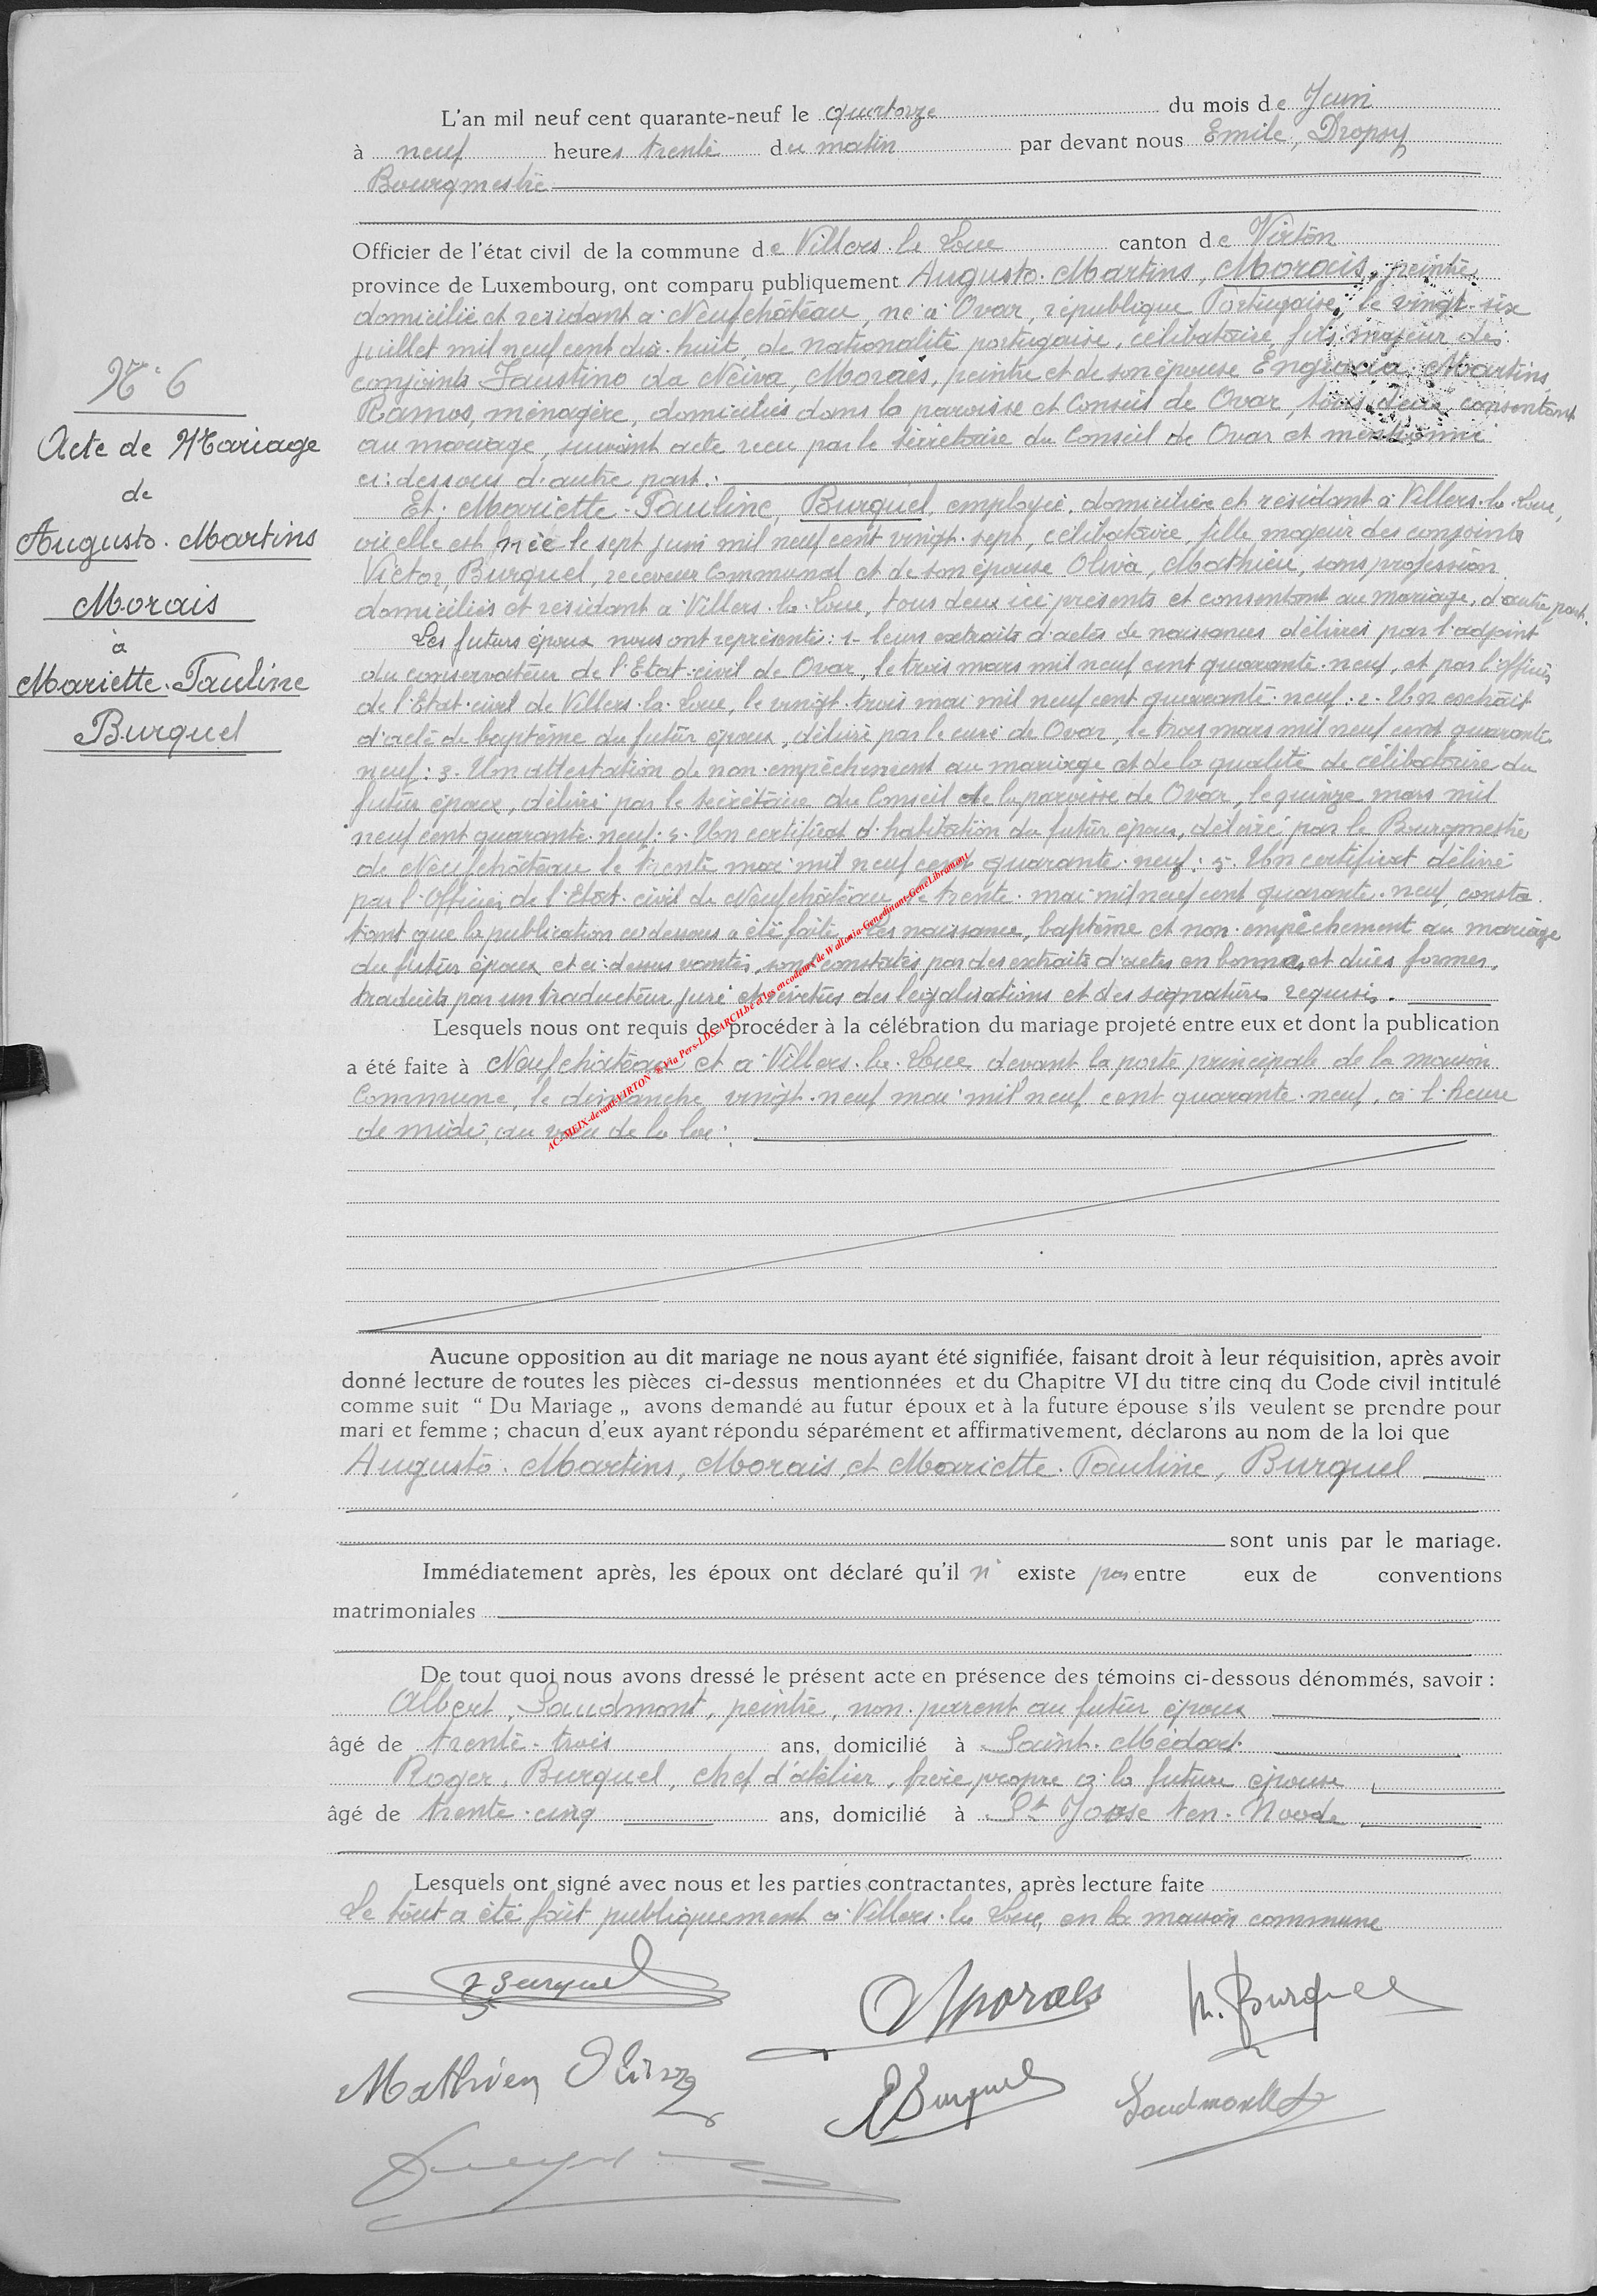 L'an mil neuf cent quarante-neuf le quatorze du mois de Juin
à neuf heures trente du matin par devant nous Emile, Dropsy
Bourgmestre
Officier de l'état civil de la commune de Villers-la-Loue canton de Virton
province de Luxembourg, ont comparu publiquement Augusto-Martins, Morais, peintre,
domicilié et résidant à Neufchâteau, né à Ovar, république Portugaise, le vingt-six
juillet mil neuf cent dix-huit, de nationalité portugaise, célibataire, fils majeur des
conjoints Faustino da Neiva, Moraes, peintre et de son épouse Engracia Martins
Ramos, ménagère, domiciliés dans la paroisse et Conseil de Ovar, tous deux consentant
au mariage, suivant acte reçu par le secrétaire du Conseil de Ovar et mentionné
ci-dessous d'autre part.
Et: Mariette-Pauline, Burquel, employée, domiciliée et résidant à Villers-la-Loue,
où elle est née le sept juin mil neuf cent vingt-sept, célibataire, fille majeur des conjoints
Victor, Burquel, receveur Communal et de son épouse Oliva, Mathieu, sans profession
domiciliés et résidant à Villers-la-Loue, tous deux ici présents et consentant au mariage, d'autre part.
Les futurs époux nous ont représenté: 1- leurs extraits d'actes de naissances délivrés par l'adjoint
du conservateur de l'Etat-civil de Ovar, le trois mars mil neuf cent quarante-neuf, et par l'officier
de l'Etat-civil de Villers-la-Loue, le vingt-trois mai mil neuf cent quarante-neuf: 2- Un extrait
d'acte de baptême du futur époux, délivré par le curé de Ovar, le trois mars mil neuf cent quarante
neuf: 3- Un attestation de non-empêchement au mariage et de la qualité de célibataire du
futur époux, délivré par le secrétaire du Conseil de la paroisse de Ovar, le quinze mars mil
neuf cent quarante-neuf: Un certificat d'habitation du futur époux, délivré par le Bourgmestre
de Neufchâteau le trente mai mil neuf cent quarante-neuf: 5- Un certificat délivré
par l'Officier de l'Etat-civil de Neufchâteau, le trente-mai mil neuf cent quarante-neuf, consta
tant que la publication ci-dessous a été faite. Les naissance, baptême et non-empêchement au mariage
du futur époux et ci-dessus vantés, sont constatés par des extraits d'actes en bonnes et dûes formes,
traduits par un traducteur juré et revêtus des légalisations et des signatures requises.
Lesquels nous ont requis de procéder à la célébration du mariage projeté entre eux et dont la publication
a été faite à Neufchâteau et à Villers-la-Loue devant la porte principale de la maison
Commune, le dimanche vingt-neuf mai mil neuf cent quarante-neuf, à l'heure
de midi, au vœu de la loi:
Aucune opposition au dit mariage ne nous ayant été signifiée, faisant droit à leur réquisition, après avoir
donné lecture de toutes les pièces ci-dessus mentionnées et du Chapitre VI du titre cinq du Code civil intitulé
comme suit “ Du Mariage „ avons demandé au futur époux et à la future épouse s'ils veulent se prendre pour
mari et femme ; chacun d'eux ayant répondu séparément et affirmativement, déclarons au nom de la loi que
Augusto-Martins, Morais, et Mariette-Pauline, Burquel
sont unis par le mariage.
Immédiatement après, les époux ont déclaré qu'il n' existe pas entre eux de conventions
matrimoniales
De tout quoi nous avons dressé le présent acte en présence des témoins ci-dessous dénommés, savoir :
Albert, Saudmont, peintre, non-parent au futur époux
âgé de trente-trois ans, domicilié à Saint-Médard
Roger, Burquel, chef d'atelier, frère propre à la future épouse
âgé de trente-cinq ans, domicilié à St Josse ten-Noode
Lesquels ont signé avec nous et les parties contractantes, après lecture faite
Le tout a été fait publiquement à Villers-la-Loue, en la maison commune
Burquel
Moraes
M. Burquel
Mathieu Oliva
R Burquel
Saudmont
N° 6
Acte de Mariage
de
Augusto-Martins
Morais
à
Mariette-Pauline
Burquel
AC-MEIX-devant-VIRTON via Pers-LDS-ARCH.be et les encodeurs de Wallonia-Genedinant-GeneLibramont